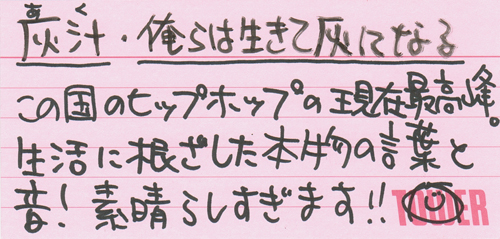 あく
灰汁・俺らは生きて灰になる
この国のヒップホップの現在最高峰。
生活に根ざした本物の言葉と
音！素晴らしすぎます!!
TOWER